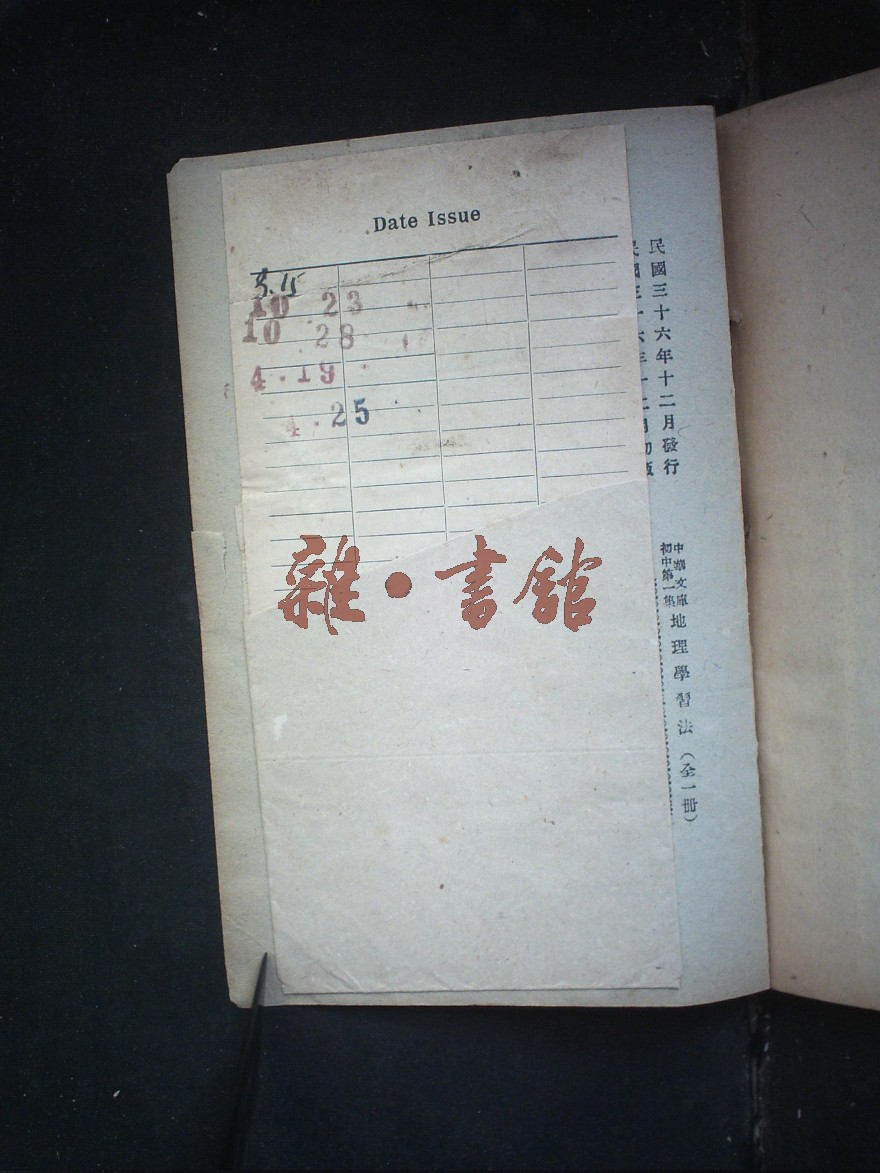 Date Issue
5.15
10 23
10 28
4.19
4.25
雜·書館
民國三十六年十二月發行
中華文庫
初中第一集
地理學習法（全一冊）